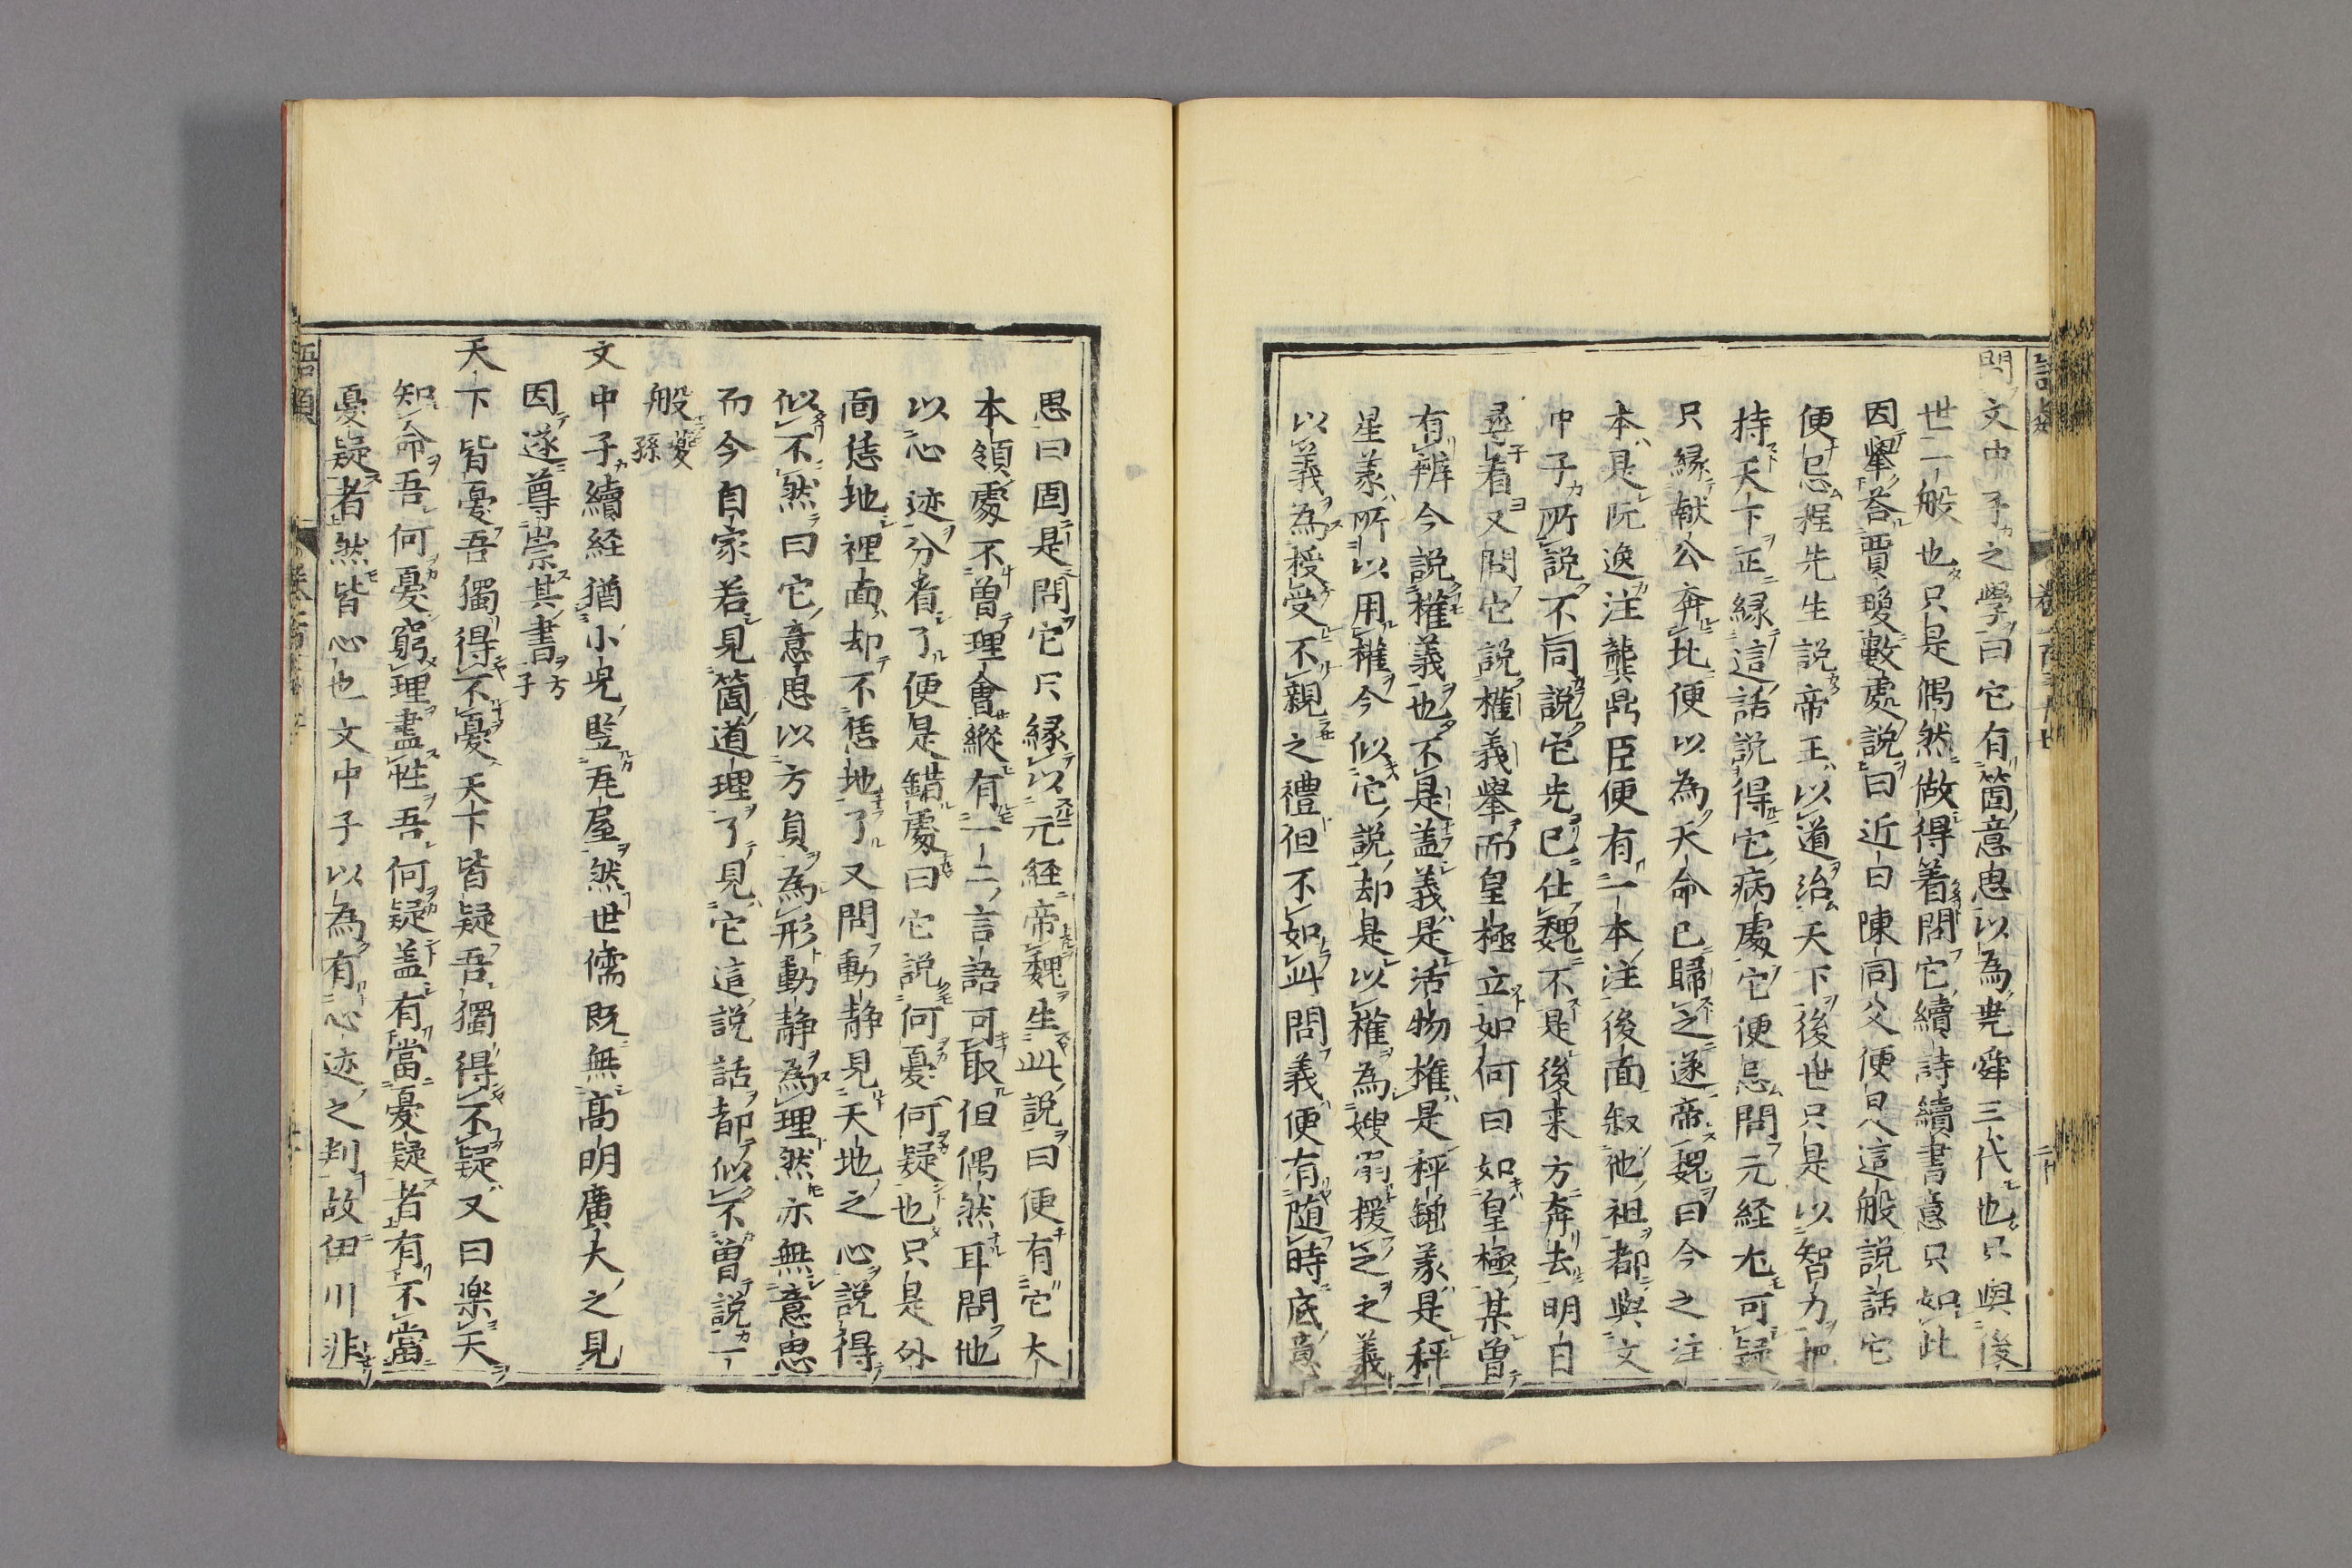 問文中子之學曰它有箇意思以為堯舜三代也只與後
世一般也只是偶然做得着問它續詩續書意只如此
因舉荅賈瓊數處說曰近日陳同父便是這般說話它
便忌程先生說帝王以道治天下後世只是以智力把
持天下正緣這話說得它病處它便忌問元経尤可疑
只緣献公奔北便以為天命已歸之遂帝魏曰今之注
本是阮逸注龔鼎臣便有一本注後面叙他祖都與文
中子所說不同說它先已仕魏不是後来方奔去明白
尋看又問它說權義舉而皇極立如何曰如皇極某曾
有辨今說權義也不是盖義是活物權是秤錘義是秤
星義所以用權今似它說却是以權為嫂溺援之之義
以義為授受不親之禮但不如此問義便有随時底意
思曰固是問它只緣以元経帝魏生此說曰便有它大
本領處不曾理會縱有一二言語可取但偶然耳問他
以心迹分看了便是錯處曰它說何憂何疑也只是外
面恁地裡面却不恁地了又問動静見天地之心說得
似不然曰它意思以方負為形動静為理然亦無意思
而今自家若見箇道理了見它這說話都似不曾說一
般夔孫
文中子續経猶小児竪瓦屋然世儒既無高明廣大之見
因遂尊崇其書方子
天下皆憂吾獨得不憂天下皆疑吾獨得不疑又曰楽天
知命吾何憂窮理盡性吾何疑盖有當憂疑者有不當
憂疑者然皆心也文中子以為有心迹之判故伊川非
語類